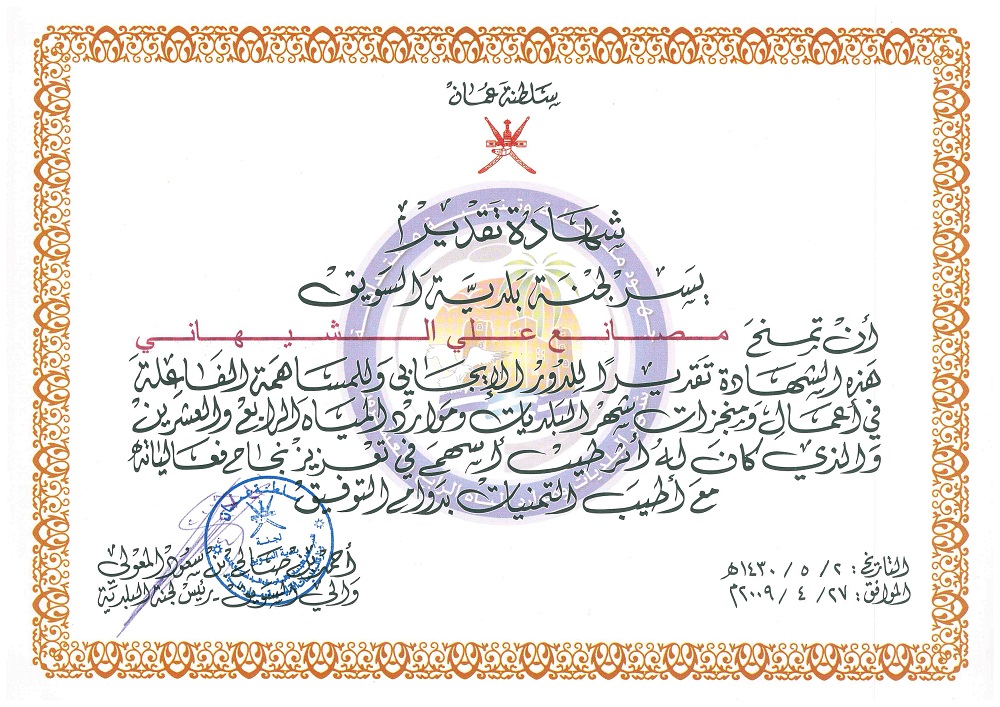 سلطنة عمان
شهادة تقدير
يسر لجنة بلدية السويق
أن تمنح مصانع علي الشيهاني
هذه الشهادة تقديرا للدور الإيجابي وللمساهمة الفاعلة
في أعمال ومنجزات شهر البلديات وموارد المياه الرابع والعشرين
والذي كان له أثر طيب أسهم في تعزيز نجاح فعالياته
مع أطيب التمنيات بدوام التوفيق
التاريخ: ٢ / ٥ / ١٤٣٠هـ
الموافق: ٢٧ / ٤ / ٢٠٠٩م
صالح بن سعود المعولي
والي السويق رئيس لجنة البلدية
سلطنة عمان
لجنة